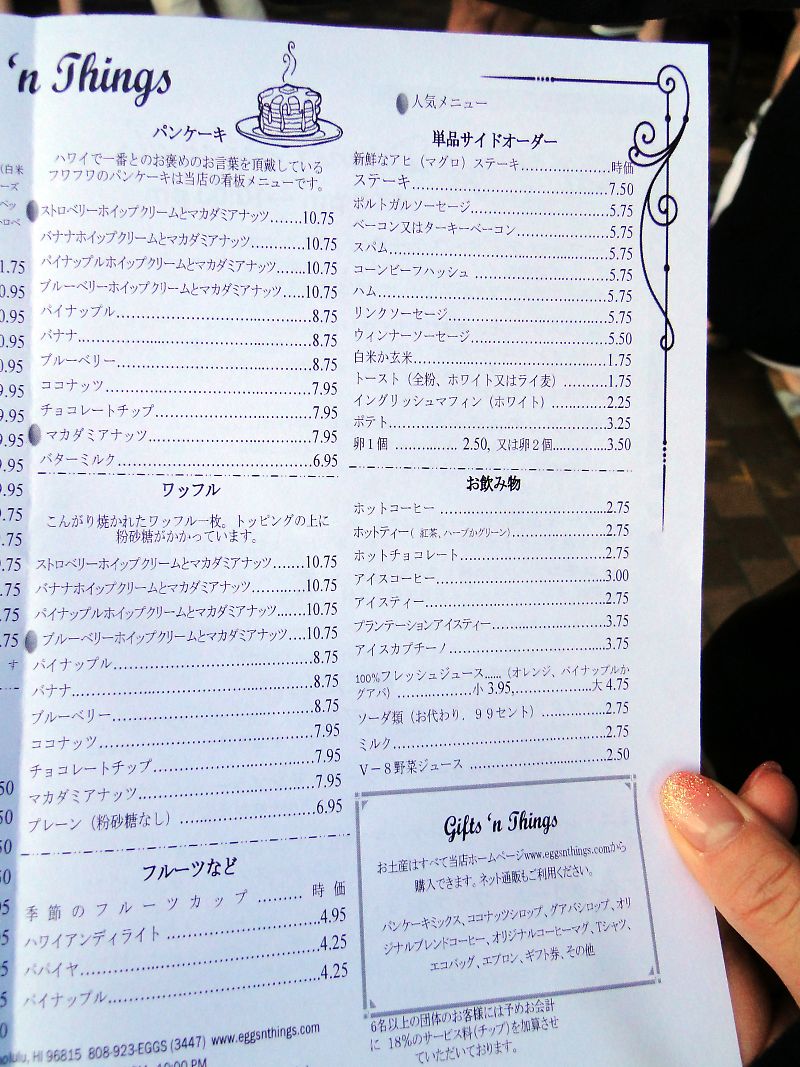 'n Things
パンケーキ
ハワイで一番とのお褒めのお言葉を頂戴している
フワフワのパンケーキは当店の看板メニューです。
ストロベリーホイップクリームとマカダミアナッツ.......10.75
バナナホイップクリームとマカダミアナッツ..............10.75
パイナップルホイップクリームとマカダミアナッツ.......10.75
ブルーベリーホイップクリームとマカダミアナッツ.....10.75
パイナップル..............8.75
バナナ..............8.75
ブルーベリー..............8.75
ココナッツ..............7.95
チョコレートチップ..............7.95
マカダミアナッツ..............7.95
バターミルク..............6.95
ワッフル
こんがり焼かれたワッフル一枚。トッピングの上に
粉砂糖がかかっています。
ストロベリーホイップクリームとマカダミアナッツ.......10.75
バナナホイップクリームとマカダミアナッツ..............10.75
パイナップルホイップクリームとマカダミアナッツ.......10.75
ブルーベリーホイップクリームとマカダミアナッツ.....10.75
パイナップル..............8.75
バナナ..............8.75
ブルーベリー..............8.75
ココナッツ..............7.95
チョコレートチップ..............7.95
マカダミアナッツ..............7.95
プレーン（粉砂糖なし）..............6.95
フルーツなど
季節のフルーツカップ.........時価
ハワイアンディライト..............4.95
パパイヤ..............4.25
パイナップル..............4.25
HI 96815 808-923-EGGS (3447) www.eggsnthings.com
人気メニュー
単品サイドオーダー
新鮮なアヒ（マグロ）ステーキ..............時価
ステーキ..............7.50
ポルトガルソーセージ..............5.75
ベーコン又はターキーベーコン..............5.75
スパム..............5.75
コーンビーフハッシュ..............5.75
ハム..............5.75
リンクソーセージ..............5.75
ウィンナーソーセージ..............5.50
白米か玄米..............1.75
トースト（全粉、ホワイト又はライ麦）...........1.75
イングリッシュマフィン（ホワイト）..............2.25
ポテト..............3.25
卵1個..............2.50, 又は卵2個..............3.50
お飲み物
ホットコーヒー..............2.75
ホットティー( 紅茶、ハーブかグリーン)..............2.75
ホットチョコレート..............2.75
アイスコーヒー..............3.00
アイスティー..............2.75
プランテーションアイスティー..............3.75
アイスカプチーノ..............3.75
100%フレッシュジュース......（オレンジ、パイナップルか
グアバ）..............小 3.95,..............大 4.75
ソーダ類（お代わり．９９セント）..............2.75
ミルク..............2.75
Ｖ－８野菜ジュース..............2.50
Gifts 'n Things
お土産はすべて当店ホームページwww.eggsnthings.comから
購入できます。ネット通販もご利用ください。
パンケーキミックス、ココナッツシロップ、グアバシロップ、オリ
ジナルブレンドコーヒー、オリジナルコーヒーマグ、Tシャツ、
エコバッグ、エプロン、ギフト券、その他
6名以上の団体のお客様には予めお会計
に 18%のサービス料(チップ)を加算させ
ていただいております。